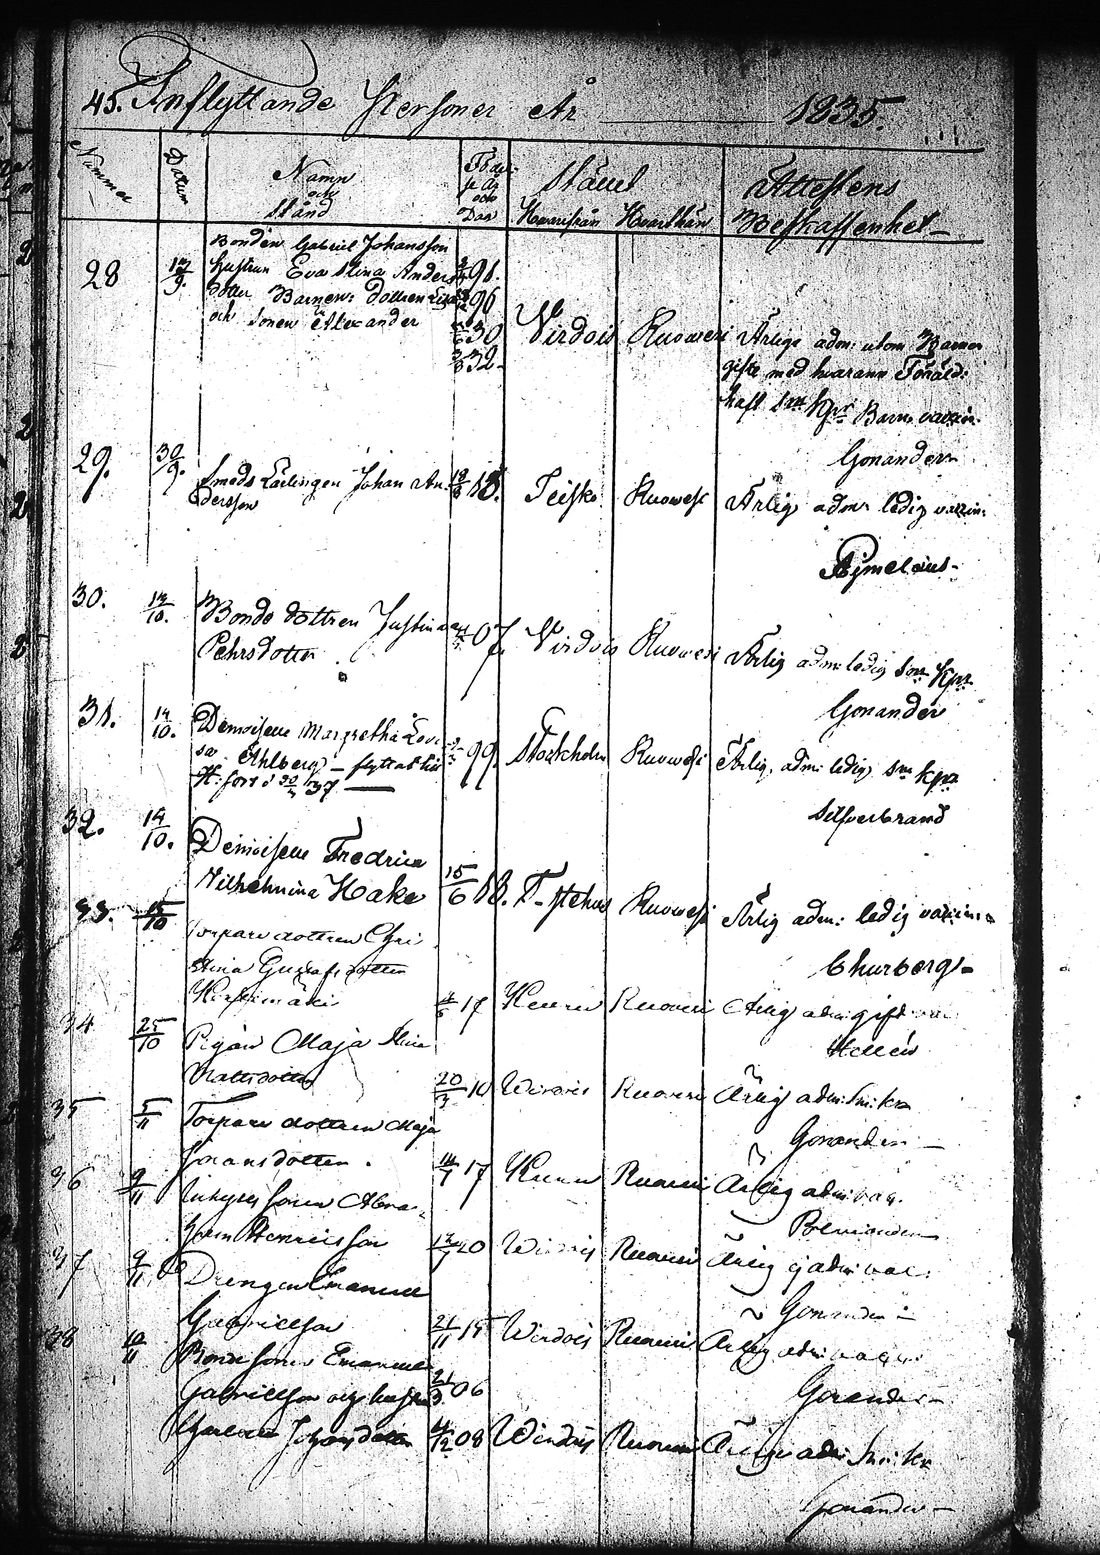 45. Inflyttande Personer År 1835.
Nummer Datum Namn och Stånd Stället Attestens
Hvarifrån Hvarthän Beskaffenhet
28 Bonden Gabriel Johansson
Hustrun Eva Stina Anders
dotter Barnen: Dottren
och Sonen Alexander
98.
96
30
32
Virdois Ruowesi Ärlige adm: utom Barnen
gifte med hvarann
Barn vaccin:
Gonander
29. 30/9. Smeds Lärlingen Johan An-
dersson
18. Teisko Ruowesi Ärlig adm: ledig vaccin:
Aejmelaeus
30. 13/10. Bonde dottren Justina
Pehrsdotter
07. Virdois Ruowesi Ärlig adm: ledig Sm: Kpr
Gonander
31. 14/10. Demoiselle Margretha Lovi
sa Ahlberg – flyttat till
99. Stockholm Ruowesi Ärlig, adm: ledig Sm: kpr
Silfverbrand
32. 14/10. Demoiselle Fredrica
Wilhelmina Hake
15/6 18. T-stehus Ruowesi Ärlig adm: ledig vaccin:
Thurberg
33. 15/10 Torpare dottren Chri
stina Gustafsdotter
17 Keuru Ruovesi Ärlig adm: gift
Hellén
34 25/10 Pigan Maja Stina
Mattsdotter
20/3 10 Wirdois Ruovesi Ärlig adm: Sm: kr
Gonander
35 5/11 Torpare dottren Maja
Johansdotter.
17 Keuru Ruovesi Ärlig adm: vac.
36 9/11 Inhyses Sonen Abra-
ham Henricsson
20 Wirdois Ruovesi Ärlig ej adm: vac:
Gonander
37 9/11 Drengen Emanuel
Gabrielsson
21/11 15 Wirdois Ruovesi Ärlig adm: vac:
Gonander
38 10/11 Bonde Sonen Emanuel
Gabrielsson och hustru
Johansdotter
06
08 Wirdois Ruovesi Ärlige adm: Sm: kr
Gonander